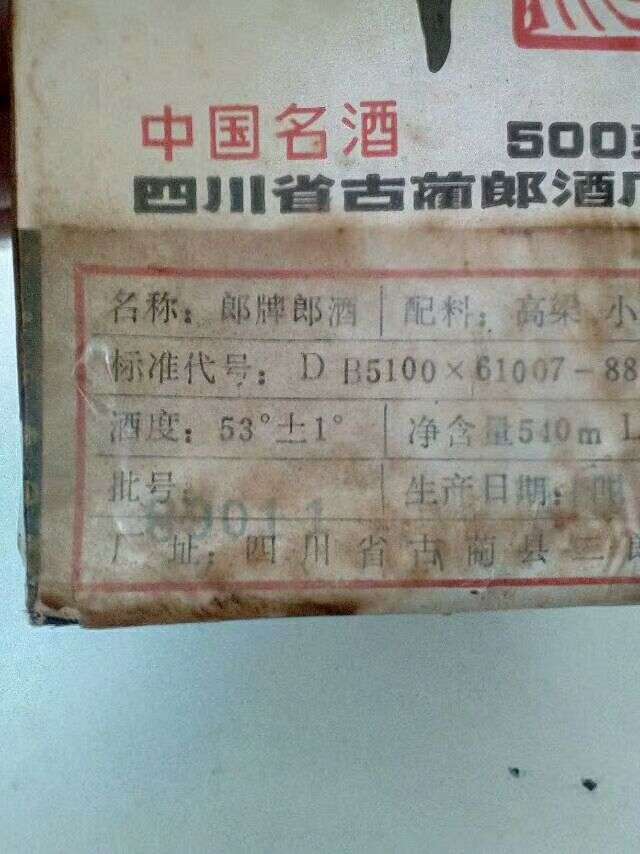 中国名酒 500
四川省古蔺郎酒厂
名称：郎牌郎酒 配料：高梁 小
标准代号：D B5100×61007-88
酒度：53°±1° 净含量540m L
批号： 生产日期：
89011
厂 址：四川省古蔺县二郎